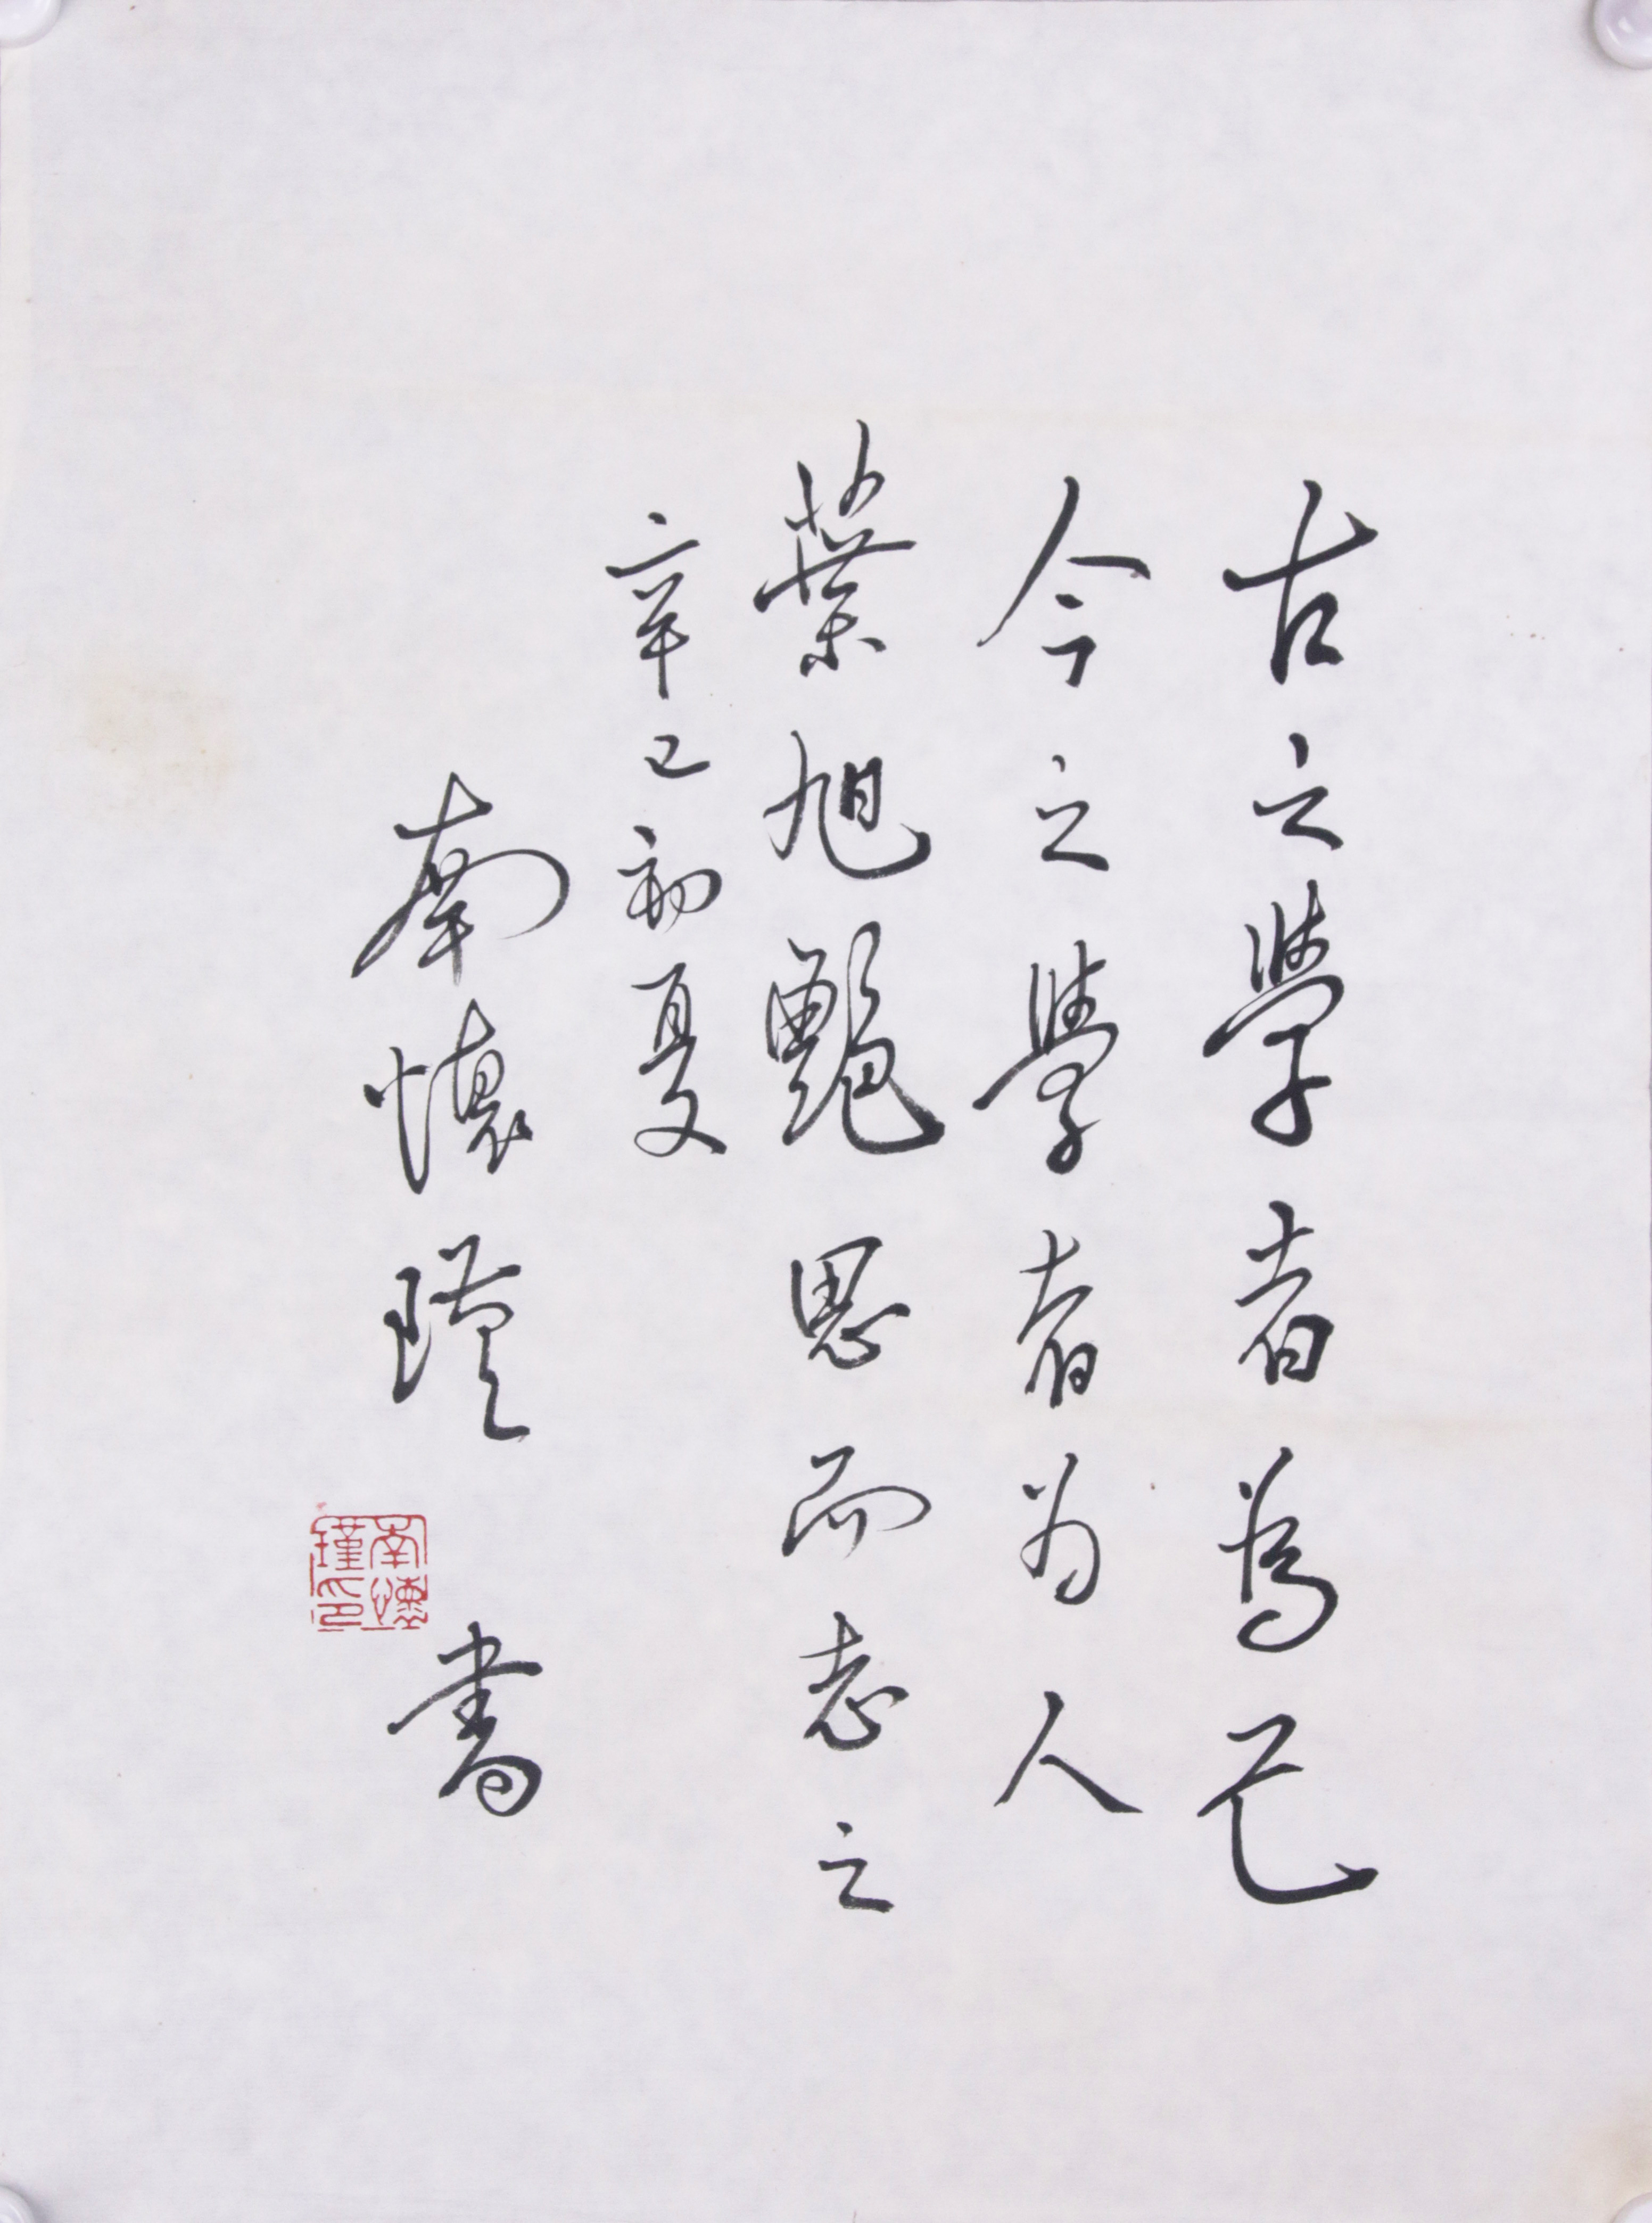 古之學者為己
今之學者为人
葉旭艷思而志之
辛巳初夏
南懷瑾 書
南懷瑾印